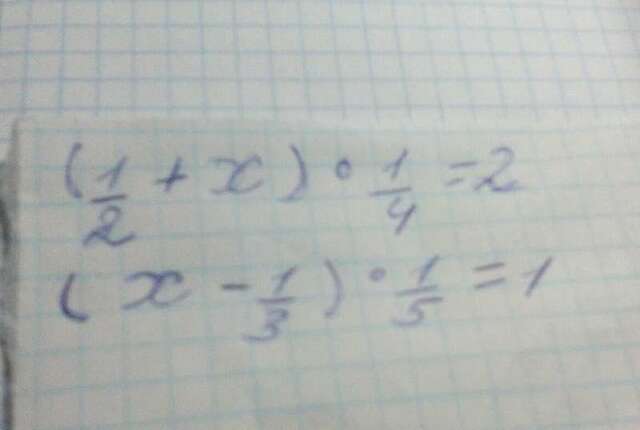 (1/2 + x) · 1/4 = 2
(x - 1/3) · 1/5 = 1